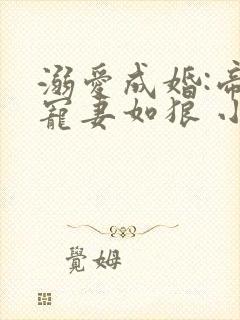 溺愛成婚:帝
寵妻如狼 小
覺姆